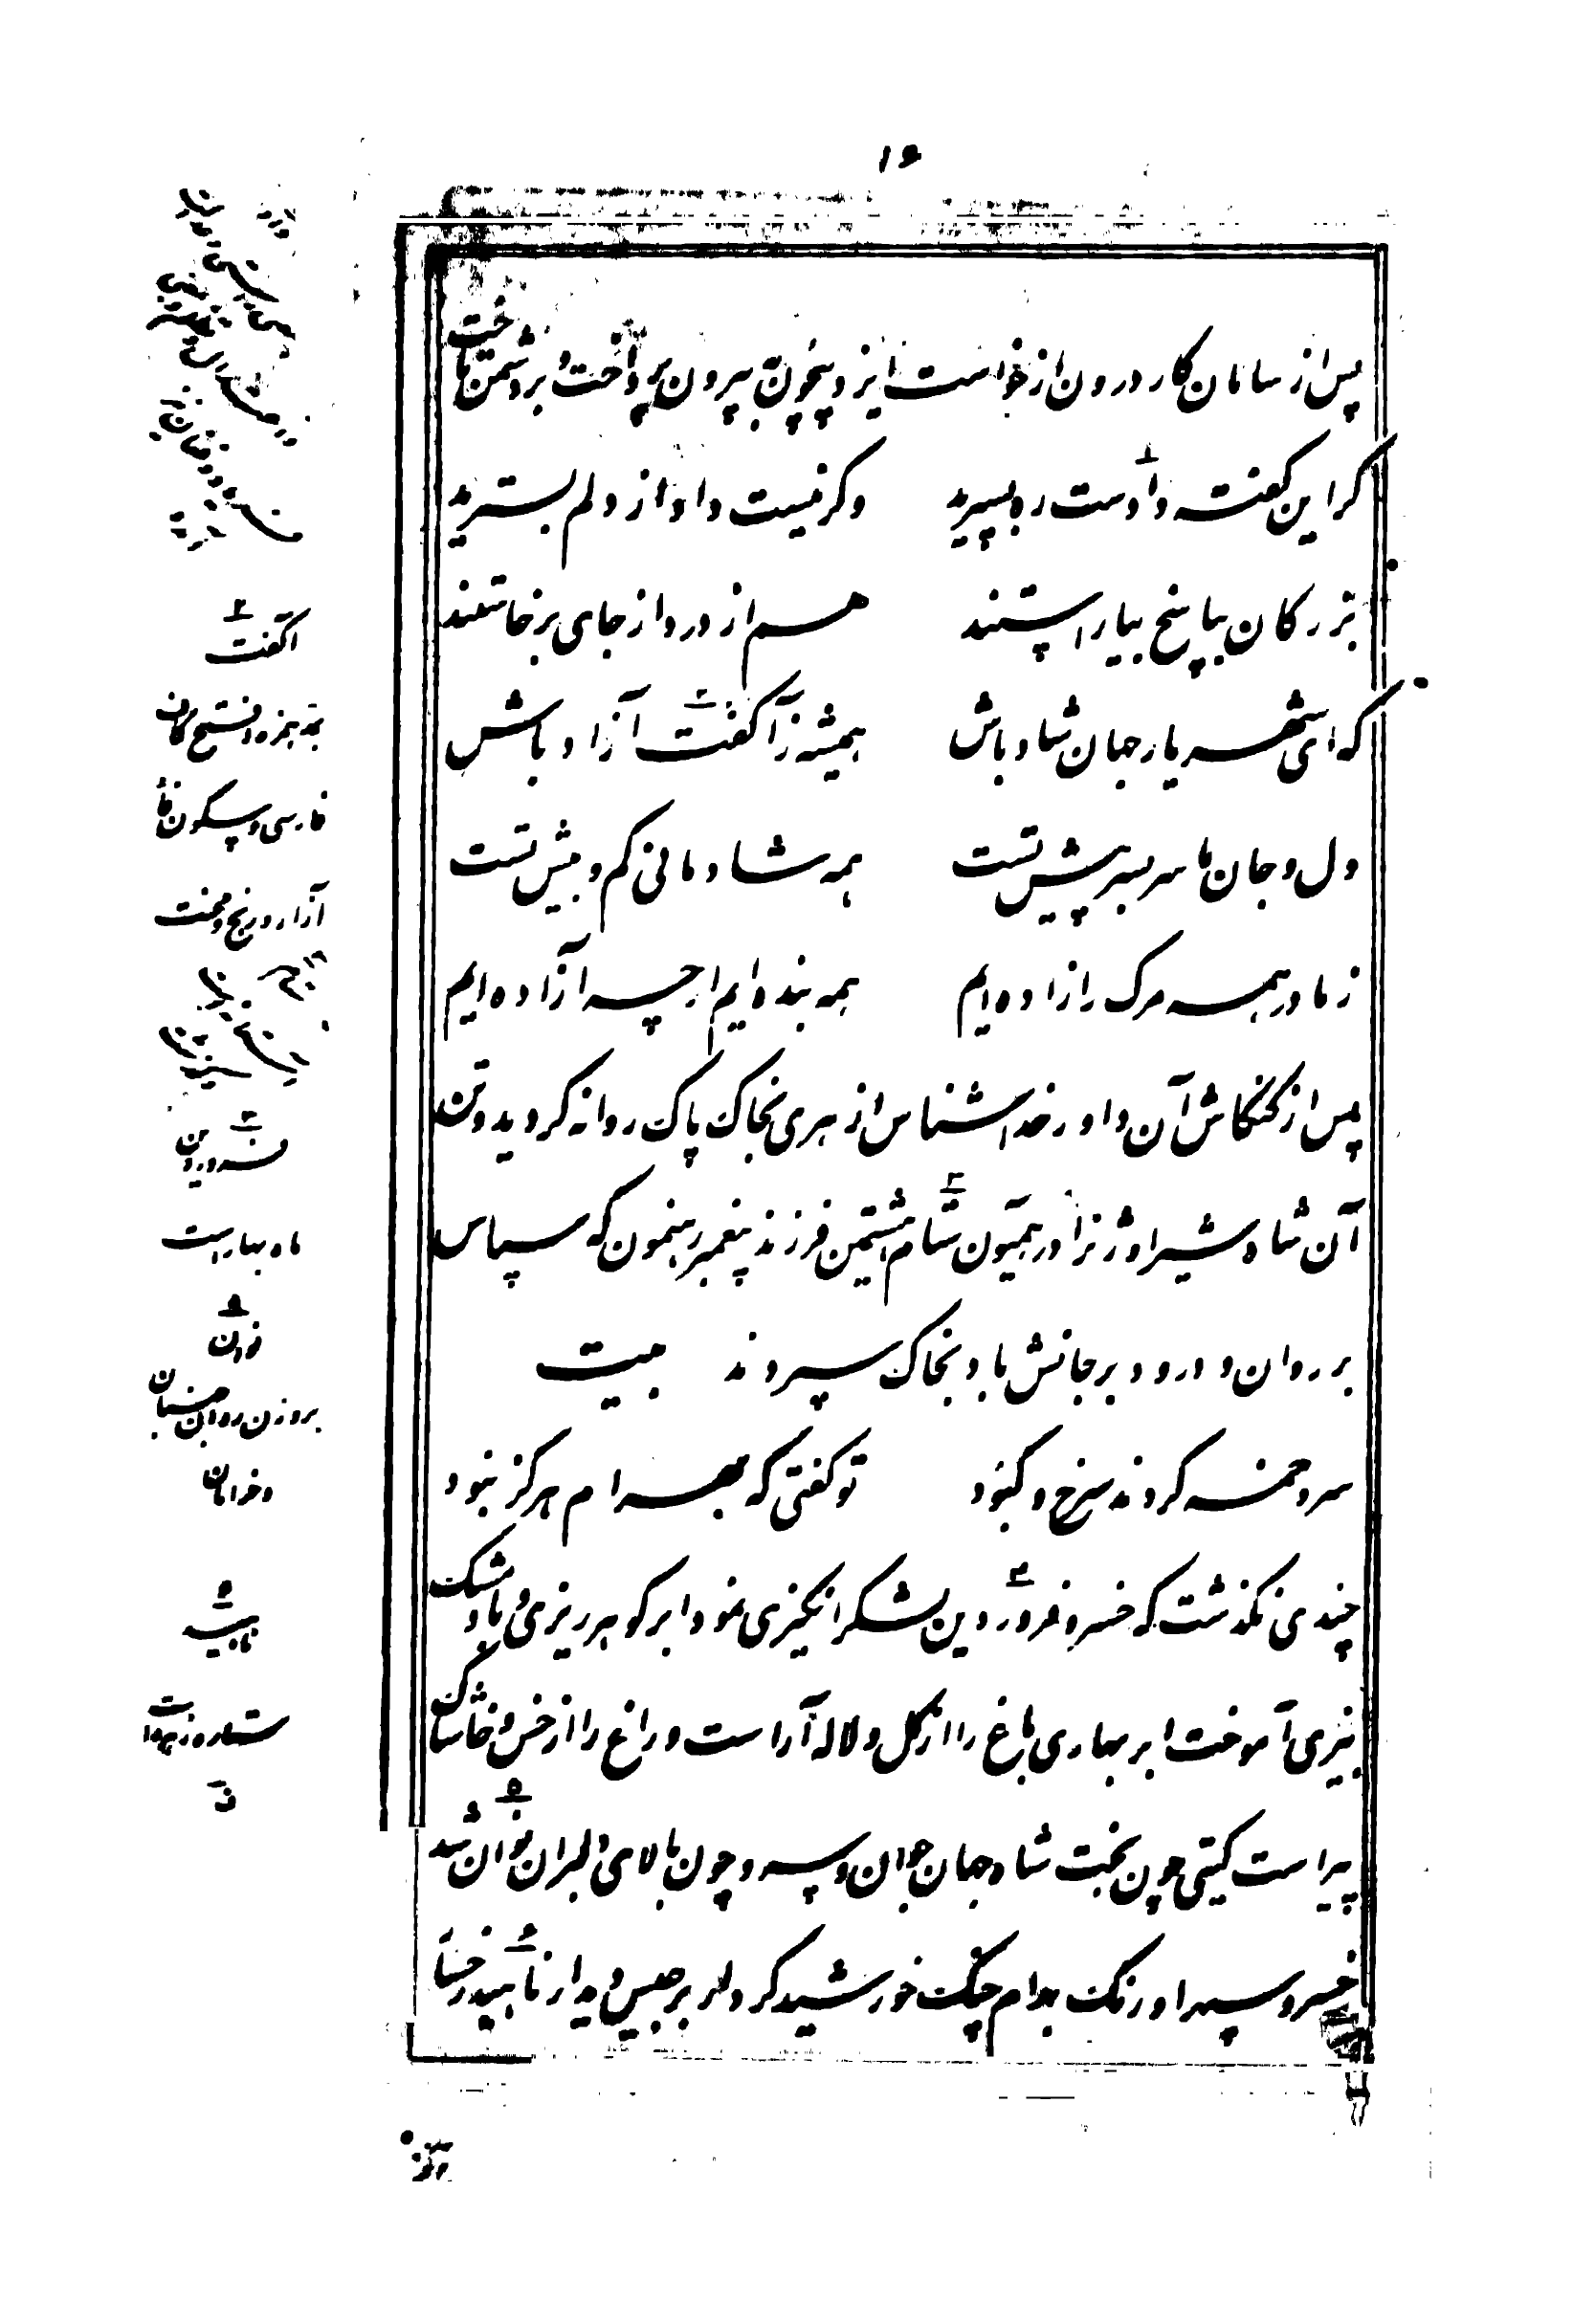 ۱۶
پس از سامان کار درون از خواست ایزد بیچون به بیرون پرداخت و بر دشمن تاخت
کر این کفته دادست ره بسپرید
وکر نیست داد از دلم بسترید
بزرکان بپاسخ بیاراستند
هم از درد از جای برخاستند
که ای شهریار جهان شاد باش
همیشه ز آکفت آزاد باش
دل و جان ما سربسر پیش تست
همه شادمانی کم و بیش تست
ز مادر همه مرک را زاده ایم
همه بنده ایم ارچه آزاده ایم
پس از کنکاش آن داور خدا شناس از هری بخاک پاک روانه کردید و تن
آن شاه شیر اوژن را در همیون شام هشتمین فرزند پیغمبر رهنمون که سپاس
بر روان و درود بر جانش باد بخاک سپردند بیت
سر دخمه کردند سرخ و کبود
تو کفتی که بهرام هرکز نبود
چندی نکذشت که خسرو فروردین لشکر انکیزی نمود ابر کوهر ریزی و باد مشک
بیزی آموخت ابر بهاری باغ را از کل و لاله آراست و راغ را از خس و خاشاک
پیراست کیتی چون بخت شاه جهان جوان و سرو چون بالای دلبران نوان شد
خسرو سپهر اورنک بهرام چنک خورشید کردار برجیس دیدار ناهید رخسا
آکفت
بمد همزه و فتح کاف
فارسی و سکون فا
آزار و رنج و محنت
فروردین
ماه بهار است
نوان
بر وزن روان جنبان
و خرامان
ناهید
ستاره زهره است